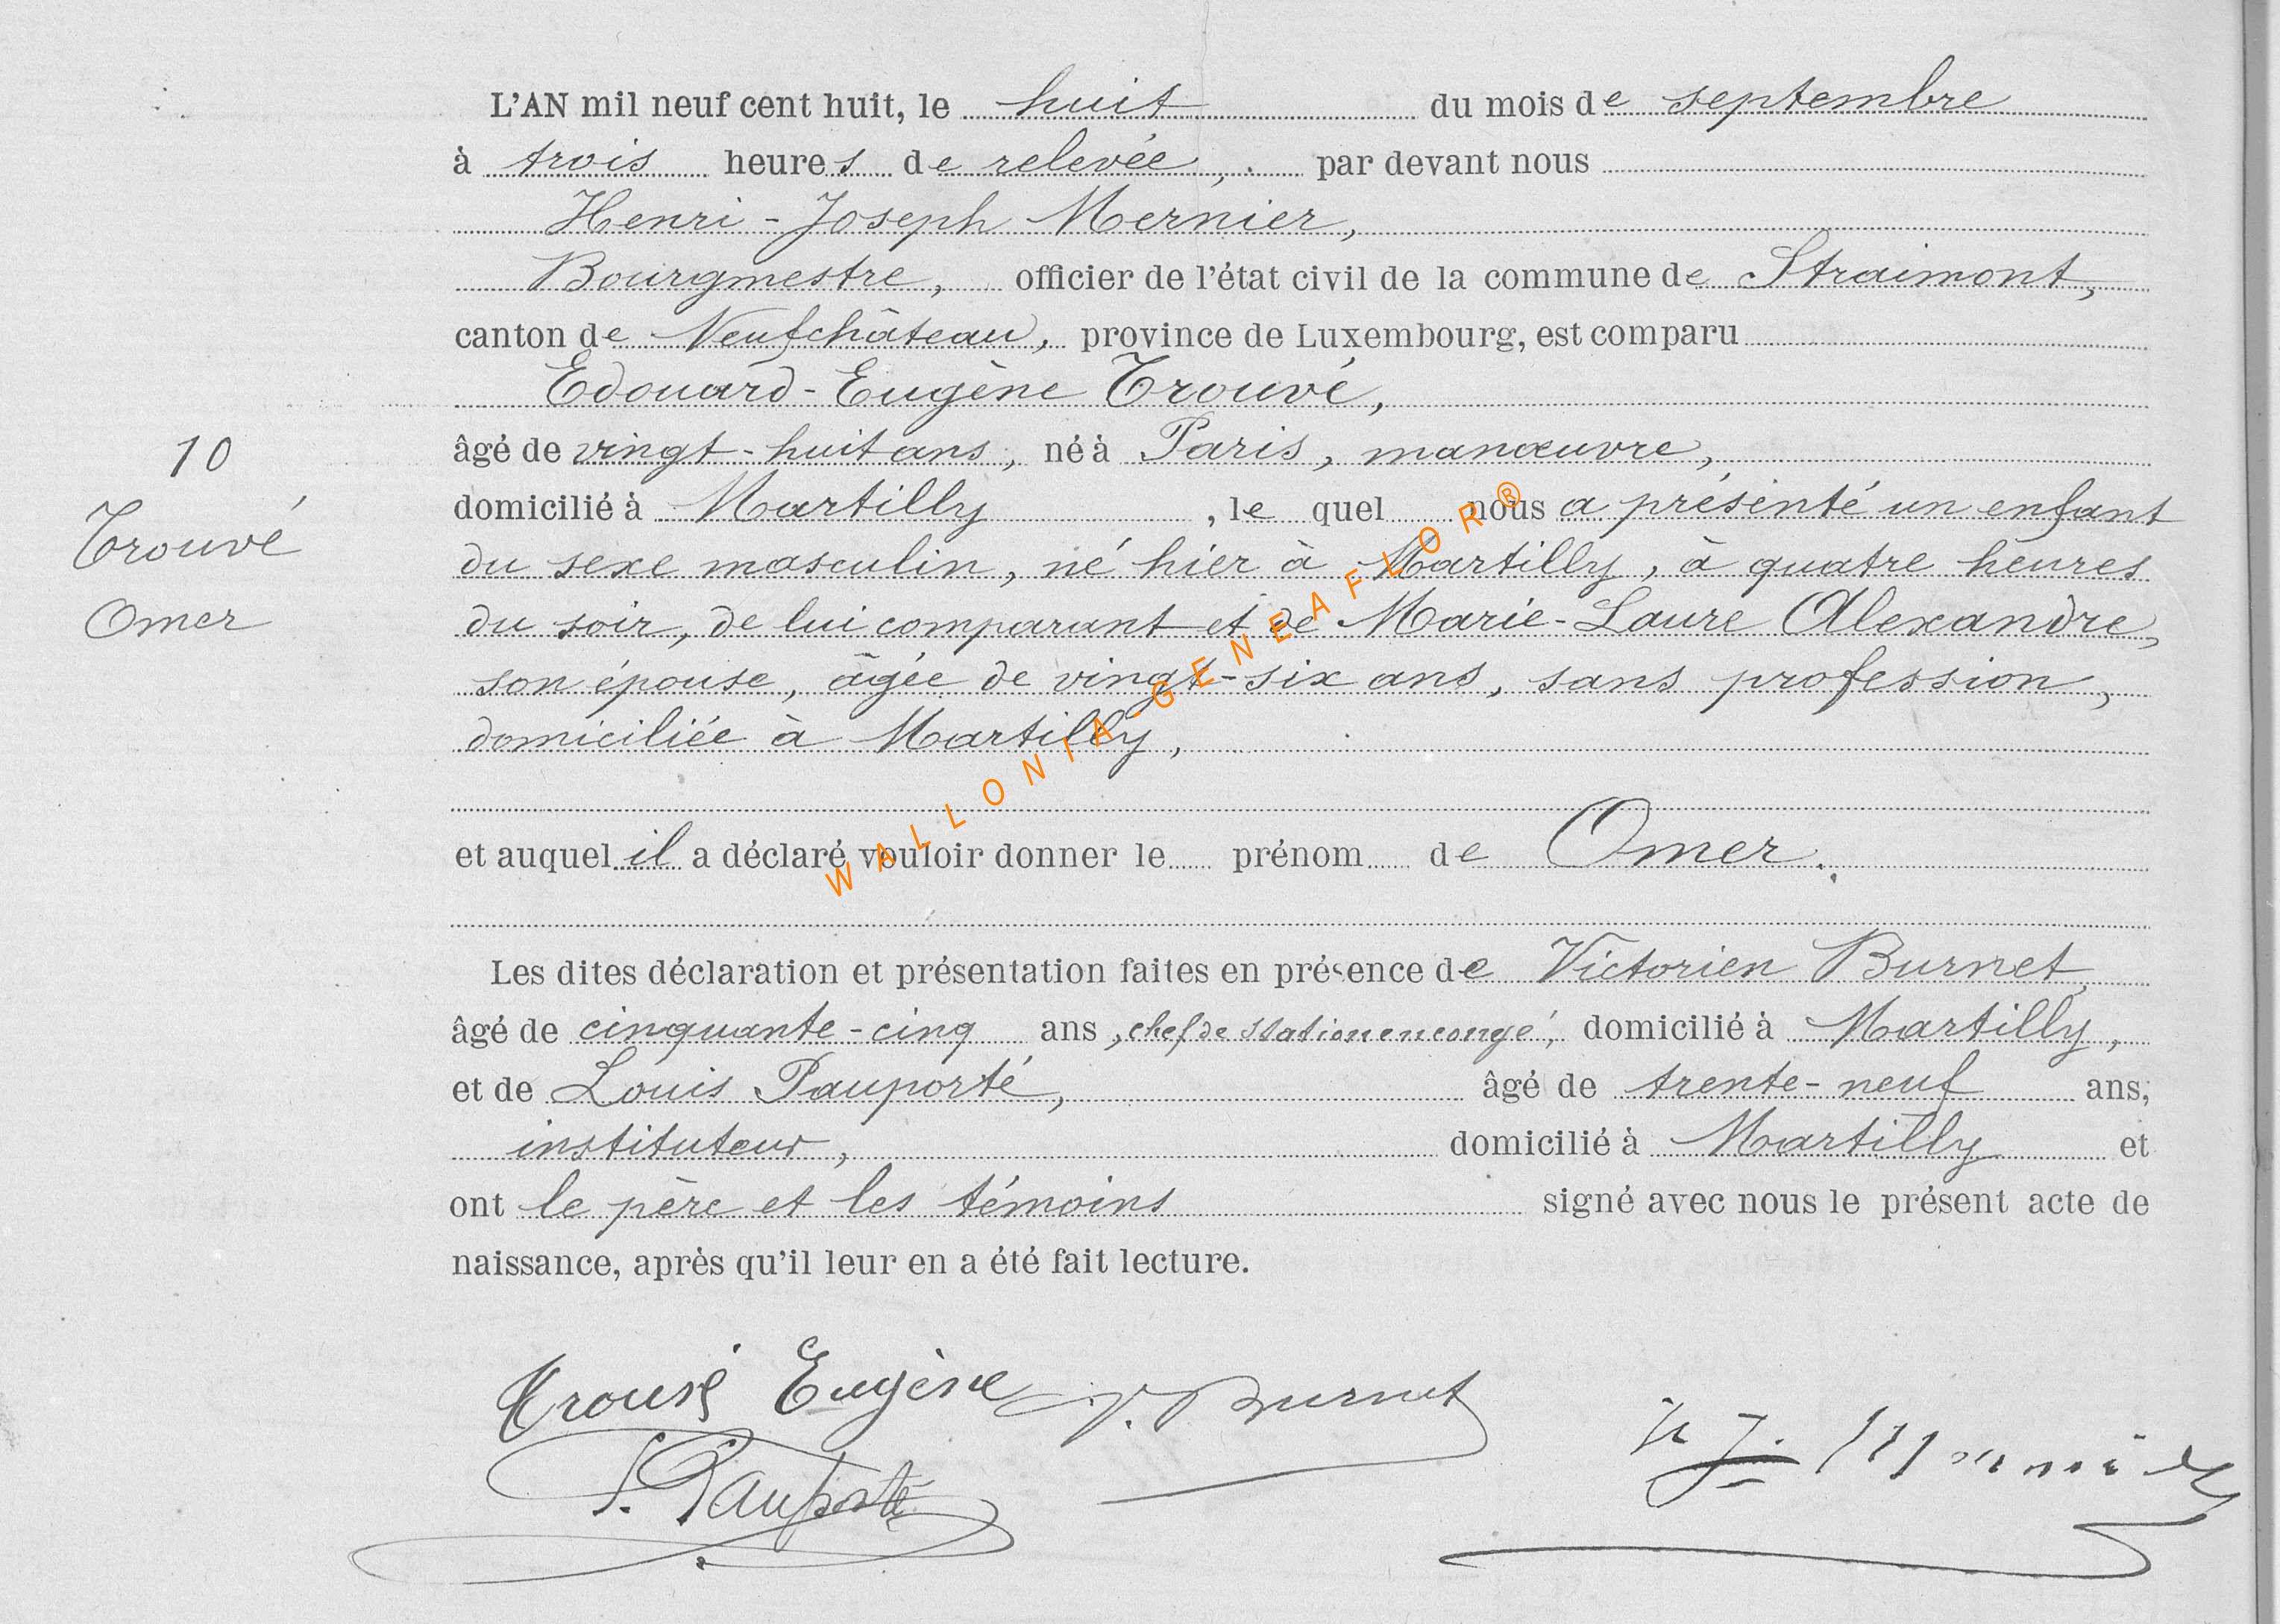 L'AN mil neuf cent huit, le huit du mois de septembre
à trois heures de relevée, par devant nous
Henri-Joseph Mernier,
Bourgmestre, officier de l'état civil de la commune de Straimont,
canton de Neufchâteau, province de Luxembourg, est comparu
Edouard-Eugène Trouvé,
âgé de vingt-huit ans, né à Paris, manœuvre,
domicilié à Martilly, le quel nous a présenté un enfant
du sexe masculin, né hier à Martilly, à quatre heures
du soir, de lui comparant et de Marie-Laure Alexandre,
son épouse, âgée de vingt-six ans, sans profession,
domiciliée à Martilly,
et auquel il a déclaré vouloir donner le prénom de Omer.
Les dites déclaration et présentation faites en présence de Victorien Burnet,
âgé de cinquante-cinq ans, chef de station en congé, domicilié à Martilly,
et de Louis Pauporté, âgé de trente-neuf ans,
instituteur, domicilié à Martilly et
ont le père et les témoins signé avec nous le présent acte de
naissance, après qu'il leur en a été fait lecture.
10
Trouvé
Omer
Trouvé Eugène V. Burnet
L. Pauporté
H J. Mernier
WALLONIA-GENEAFLOR®